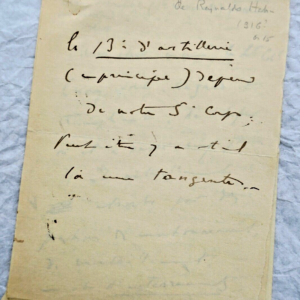 De Reynaldo Hahn
1916
Le 13e d'artillerie
(en principe) dépend
de notre 5e Corps.
Peut être y a-t-il
là une tangente..